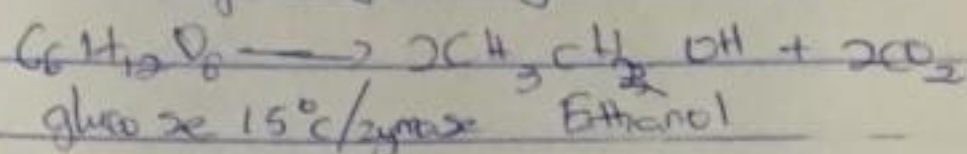 C6H12O6 → 2CH3CH2OH + 2CO2
glucose 15°C/zymase Ethanol